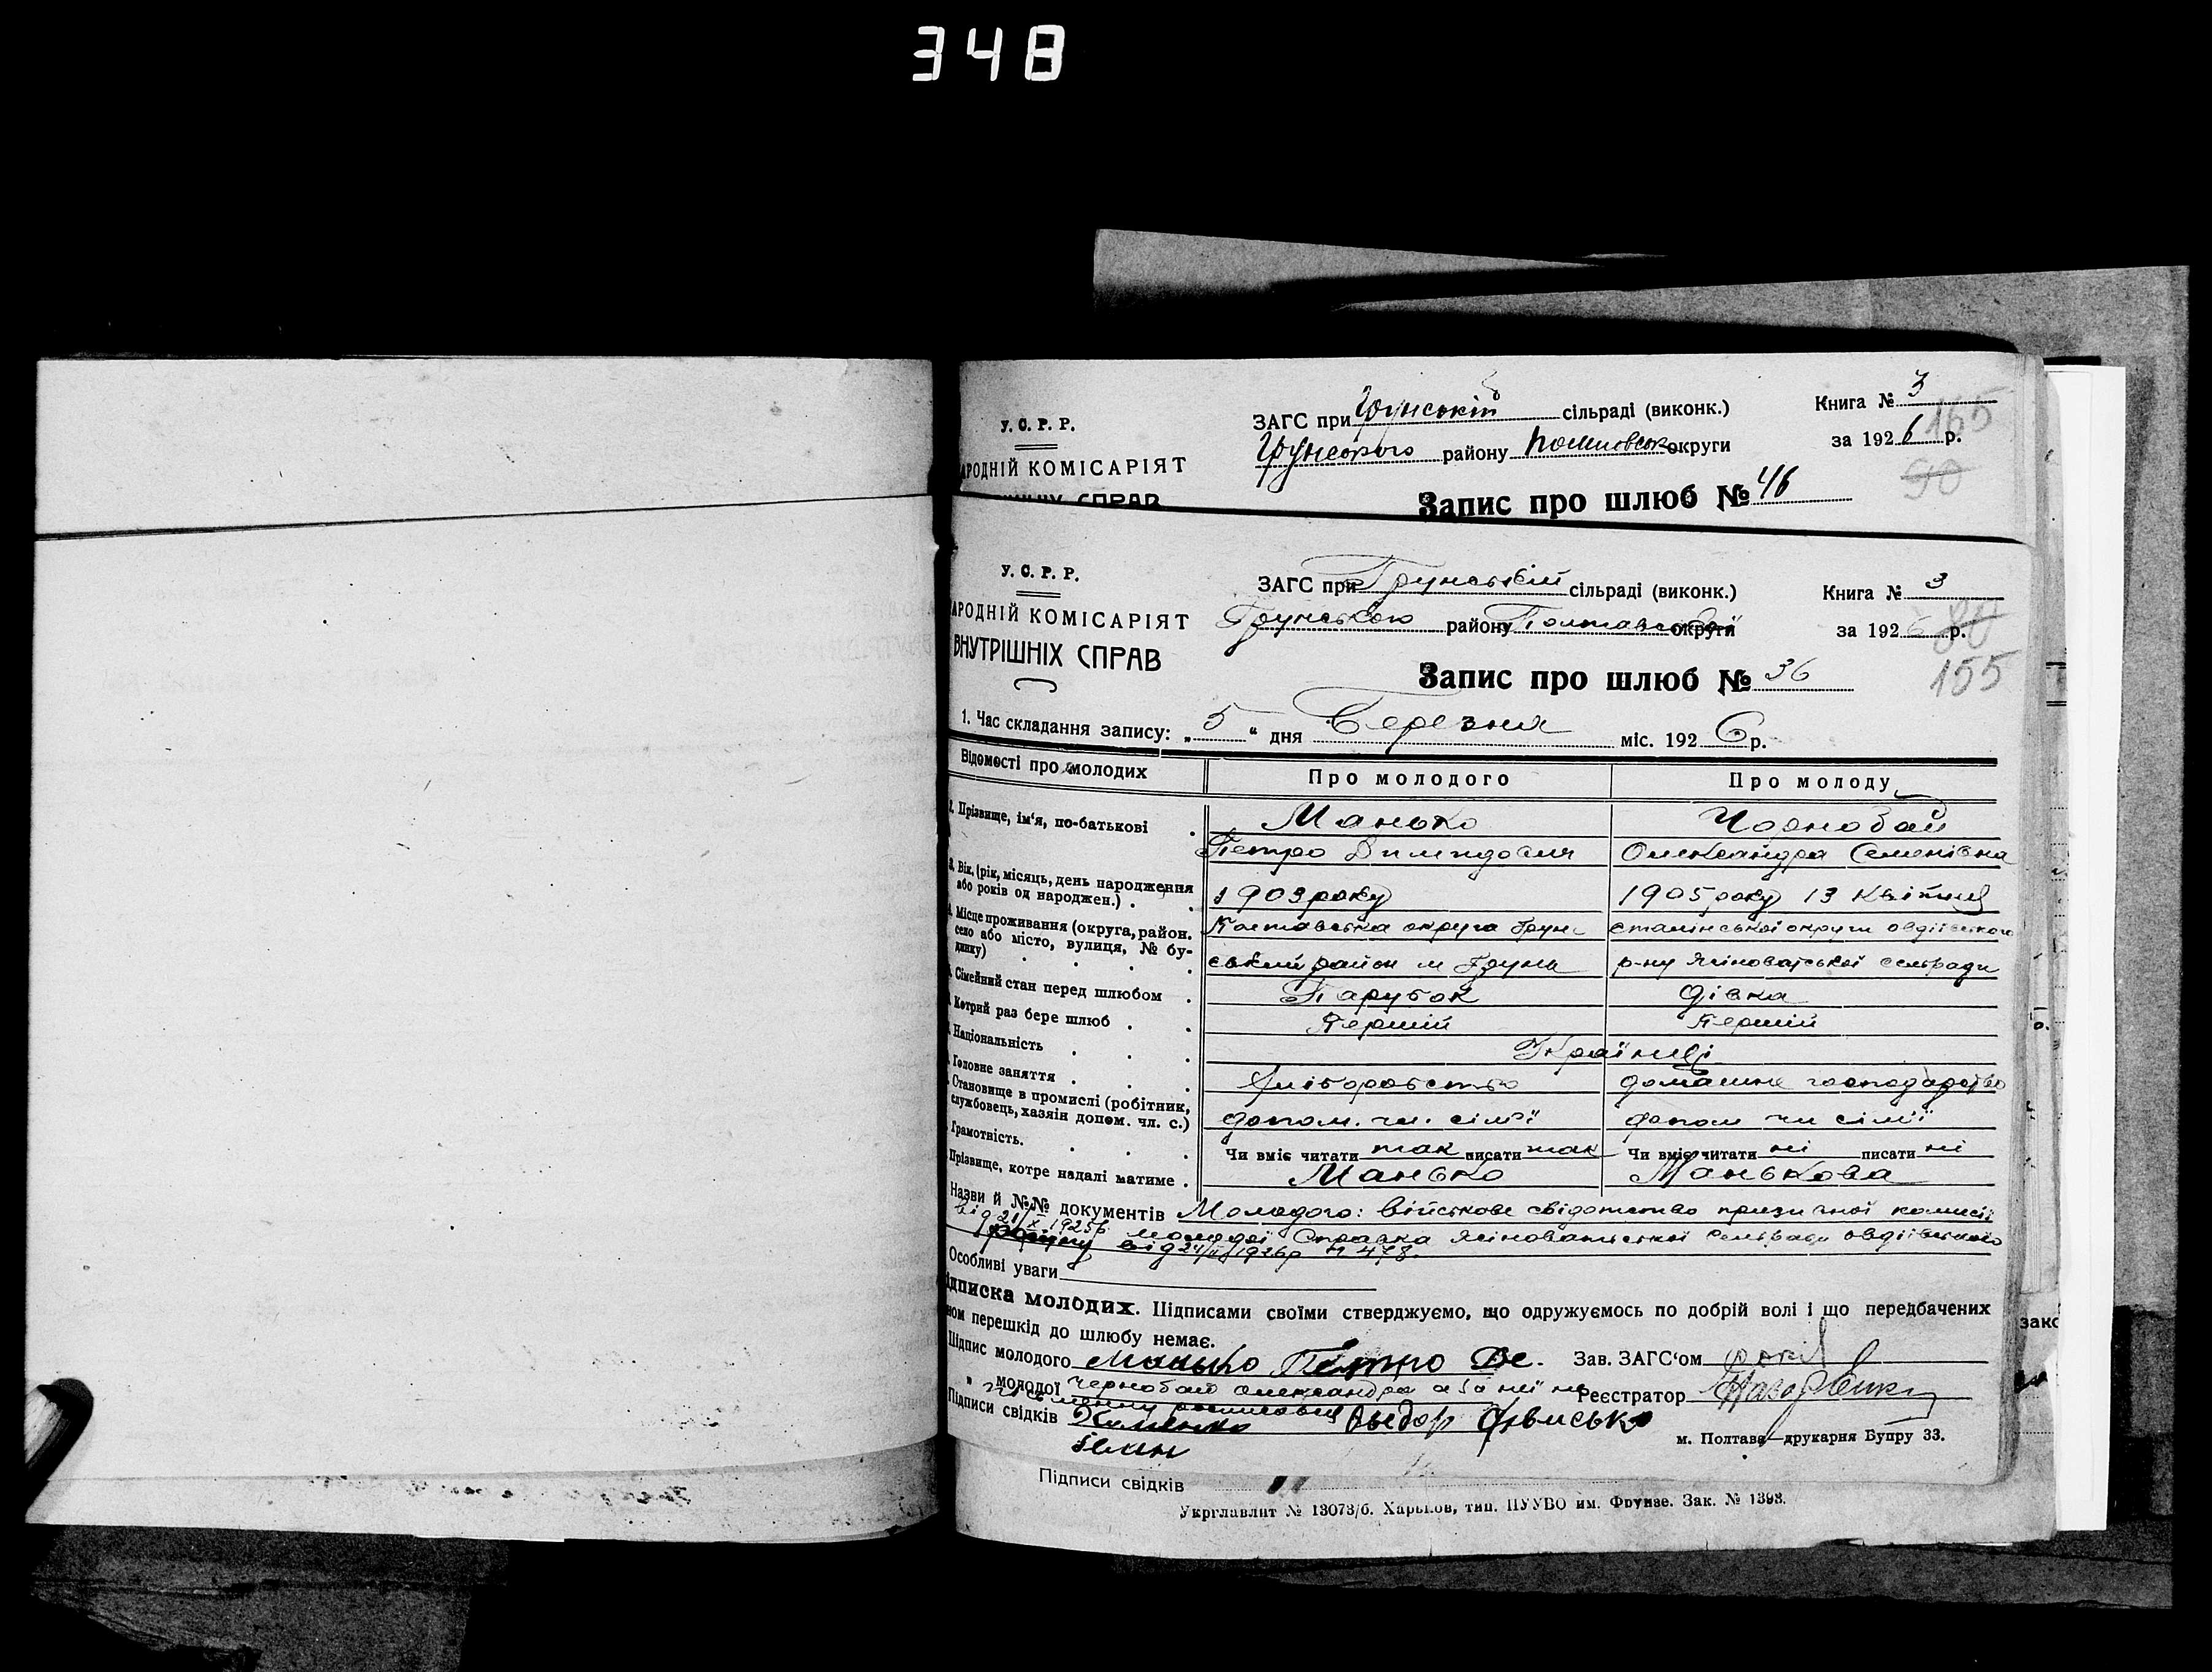 348
У. С. Р. Р.
АРОДНІЙ КОМІСАРІЯТ
СПРАВ
ЗАГС при Грунській сільраді (виконк.)
Грунського району округи
Книга № 3
165
за 1926 р.
90
Запис про шлюб № 46
У. С. Р. Р.
АРОДНІЙ КОМІСАРІЯТ
ВНУТРІШНІХ СПРАВ
ЗАГС при Грунській сільраді (виконк.)
Грунського району Полтавської округи
Книга № 3
за 1926 р.
80
155
Запис про шлюб № 36
1. Час складання запису: „5" дня Березня міс. 1926 р.
Відомості про молодих
Про молодого
Про молоду
2. Прізвище, ім'я, по-батькові
Манько
Чорнобай
Петро
Олександра Семенівна
3. Вік, (рік, місяць, день народження
або років од народжен.)
1903 року
1905 року 13 Квітня
Місце проживання (округа, район,
село або місто, вулиця, № бу-
динку)
Полтавська округа Грун
сталінської округи овдіївського
ський район м Грунь
р-ну Ясіноватської сельради
Сімейний стан перед шлюбом
Парубок
дівка
Котрий раз бере шлюб
Перший
Перший
Національність
Українці
Головне заняття
Хліборобство
домашнє господарство
Становище в промислі (робітник,
службовець, хазяїн допом. чл. с.)
допом. чл. сім'ї
допом чл сім'ї
Грамотність.
Чи вміє читати так писати так
Чи вміє читати ні писати ні
Прізвище, котре надалі матиме
Манько
Манькова
Назви й №№ документів Молодого: військове свідотство призичної комисії
від 21/X 1925 б молодої Справка Ясіноватьської Сельради овдіївського
району від 24/II 1926 р N 478.
Особливі уваги
ідписка молодих. Підписами своїми стверджуємо, що одружуємось по добрій волі і що передбачених
ном перешкід до шлюбу немає.
Підпис молодого Манько Петро Зав. ЗАГС'ом
" молодої Чернобай олександра а за неї не Реєстратор
письменну росписався
Підписи свідків
м. Полтава—друкарня Бупру 33.
зако
Підписи свідків
Укрглавлит № 13073/б. Харьков, тип. ПУУВО им. Фрунзе. Зак. № 1393.